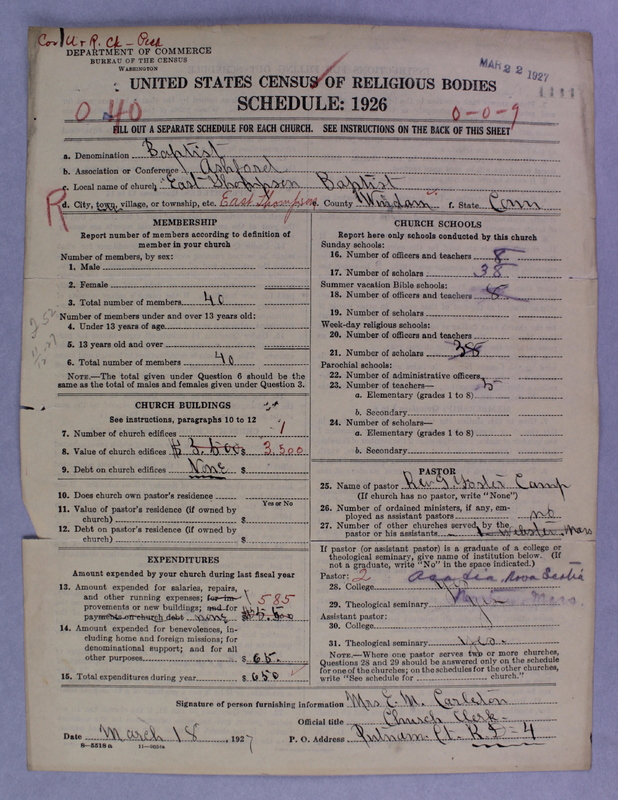 Cor U + R. Ch -
DEPARTMENT OF COMMERCE
BUREAU OF THE CENSUS
WASHINGTON
MAR 22 1927
1111
UNITED STATES CENSUS OF RELIGIOUS BODIES
SCHEDULE: 1926
0 40
0-0-9
FILL OUT A SEPARATE SCHEDULE FOR EACH CHURCH. SEE INSTRUCTIONS ON THE BACK OF THIS SHEET
a. Denomination Baptist
b. Association or Conference Ashford
c. Local name of church East Thompson Baptist
R
d. City, town, village, or township, etc. East Thompson e. County Windam f. State Conn
MEMBERSHIP
Report number of members according to definition of
member in your church
Number of members, by sex:
1. Male
2. Female
3. Total number of members 40
Number of members under and over 13 years old:
4. Under 13 years of age
5. 13 years old and over
6. Total number of members 40
NOTE.—The total given under Question 6 should be the
same as the total of males and females given under Question 3.
CHURCH BUILDINGS
See instructions, paragraphs 10 to 12
7. Number of church edifices 1
8. Value of church edifices $ 3,500 $ 3,500
9. Debt on church edifices None $
10. Does church own pastor's residence
Yes or No
11. Value of pastor's residence (if owned by
church) $
12. Debt on pastor's residence (if owned by
church) $
EXPENDITURES
Amount expended by your church during last fiscal year
13. Amount expended for salaries, repairs,
and other running expenses; for im-
provements or new buildings; and for
payments on church debt none $ 585
14. Amount expended for benevolences, in-
cluding home and foreign missions; for
denominational support; and for all
other purposes $ 65.
15. Total expenditures during year $ 650
CHURCH SCHOOLS
Report here only schools conducted by this church
Sunday schools:
16. Number of officers and teachers 8
17. Number of scholars 38
Summer vacation Bible schools:
18. Number of officers and teachers 8
19. Number of scholars
Week-day religious schools:
20. Number of officers and teachers
21. Number of scholars 38
Parochial schools:
22. Number of administrative officers
23. Number of teachers— 5
a. Elementary (grades 1 to 8)
b. Secondary
24. Number of scholars—
a. Elementary (grades 1 to 8)
b. Secondary
PASTOR
25. Name of pastor Rev. G. Foster Camp
(If church has no pastor, write "None")
26. Number of ordained ministers, if any, em-
ployed as assistant pastors no
27. Number of other churches served by the
pastor or his assistants 1- Webster, Mass
If pastor (or assistant pastor) is a graduate of a college or
theological seminary, give name of institution below. (If
not a graduate, write "No" in the space indicated.)
Pastor: 2 Acadia, Nova Scotia
28. College
29. Theological seminary
Assistant pastor:
30. College
31. Theological seminary yes.
NOTE.—Where one pastor serves two or more churches,
Questions 28 and 29 should be answered only on the schedule
for one of the churches; on the schedules for the other churches,
write "See schedule for church."
Signature of person furnishing information Mrs E. M. Carleton
Official title Church Clerk.
Date March 18, 1927
P. O. Address Putnam Ct. R D = 4
8—5518a 11—9034a